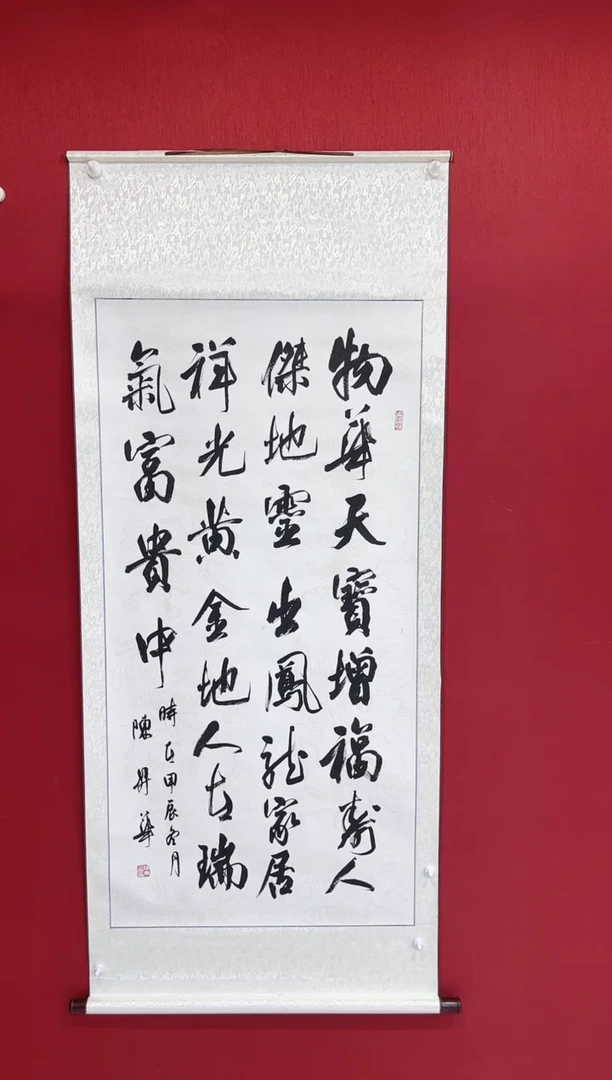 物華天寶增福壽人
傑地靈出鳳龍家居
祥光黄金地人在瑞
氣富貴中
時在甲辰冬月
陳昇華